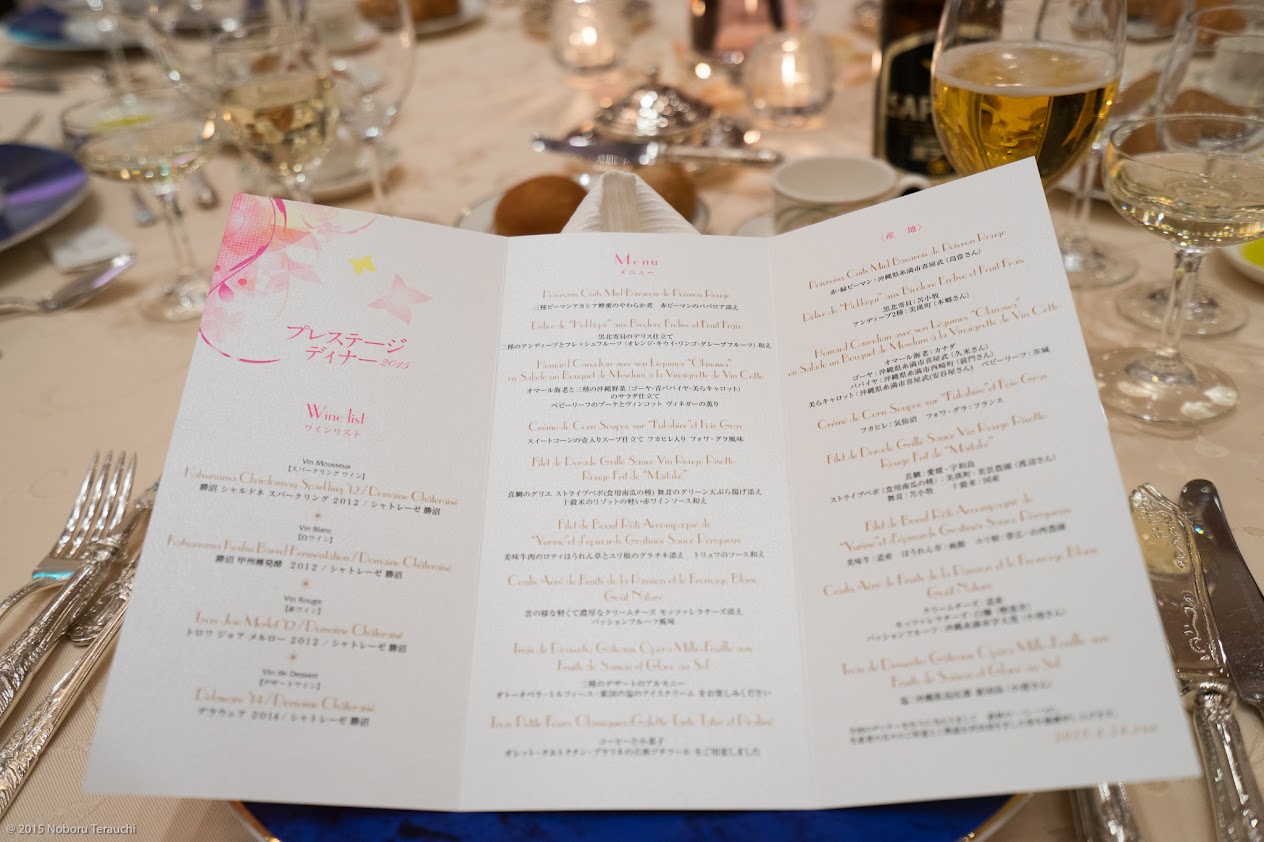 プレステージ
ディナー 2015
Wine list
ワインリスト
Vin Mousseux
【スパークリング ワイン】
Katsunuma Chardonnay Sparkling '12 / Domaine Châteraisé
勝沼 シャルドネ スパークリング 2012 / シャトレーゼ 勝沼
Vin Blanc
【白ワイン】
Katsunuma Koshu Barrel Fermentation / Domaine Châteraisé
勝沼 甲州樽発酵 2012 / シャトレーゼ 勝沼
Vin Rouge
【赤ワイン】
Trois Joie Merlot '12 / Domaine Châteraisé
トロワ ジョア メルロー 2012 / シャトレーゼ 勝沼
Vin de Dessert
【デザートワイン】
Delaware '14 / Domaine Châteraisé
デラウェア 2014 / シャトレーゼ 勝沼
Menu
メニュー
Poivrons Cuits Miel Bavarois de Poivron Rouge
三種ピーマンアカシア蜂蜜のやわらか煮 赤ピーマンのババロア添え
Délice de "Hokkigai" aux Bicolore Endive et Fruit Frais
黒北寄貝のデリス仕立て
二種のアンディーブとフレッシュフルーツ (オレンジ・キウイ・リンゴ・グレープフルーツ) 和え
Homard Canadian avec son Légumes "Okinawa"
en Salade un Bouquet de Mesclun à la Vinaigrette de Vin Cotto
オマール海老と三種の沖縄野菜 (ゴーヤ・青パパイヤ・美らキャロット)
のサラダ仕立て
ベビーリーフのブーケとヴィンコット ヴィネガーの薫り
Crème de Corn Soupe sur "Fukahire" et Foie Gras
スイートコーンの壺入りスープ仕立て フカヒレ入り フォワ・グラ風味
Filet de Dorade Grillé Sauce Vin Rouge Risotto
Rouge Frit de "Maitake"
真鯛のグリエ ストライプペポ (食用南瓜の種) 舞茸のグリーン天ぷら揚げ添え
十穀米のリゾットの軽い赤ワインソース和え
Filet de Boeuf Rôti Accompagné de
"Yurine" et d'épinards Gratinés Sauce Périgueux
美味牛肉のロティほうれん草とユリ根のグラチネ添え トリュフのソース和え
Coulis Aéré de Fruits de la Passion et le Fromage Blanc
Goût Nature
雲の様な軽くて濃厚なクリームチーズ モッツァレラチーズ添え
パッションフルーツ風味
Trois de Desserts, Gâteaux Opera Mille-Feuille aux
Fruits de Saison et Glace au Sel
三種のデザートのアルモニー
ガトーオペラ・ミルフィーユ・粟国の塩のアイスクリーム をお楽しみください
Trois Petits Fours Classiques Galette Tarte Tatin et Praliné
コーヒーと小菓子
ガレット・タルトタタン・プラリネの古典プチフール をご用意しました
〈産 地〉
Poivrons Cuits Miel Bavarois de Poivron Rouge
赤・緑ピーマン:沖縄県糸満市喜屋武 (島常さん)
Délice de "Hokkigai" aux Bicolore Endive et Fruit Frais
黒北寄貝:苫小牧
アンディーブ2種:美瑛町 (本郷さん)
Homard Canadian avec son Légumes "Okinawa"
en Salade un Bouquet de Mesclun à la Vinaigrette de Vin Cotto
オマール海老:カナダ
ゴーヤ:沖縄県糸満市喜屋武 (久米さん)
パパイヤ:沖縄県糸満市西崎町 (前門さん)
美らキャロット:沖縄県糸満市喜屋武 (安谷屋さん) ベビーリーフ:茨城
Crème de Corn Soupe sur "Fukahire" et Foie Gras
フカヒレ:気仙沼 フォワ・グラ:フランス
Filet de Dorade Grillé Sauce Vin Rouge Risotto
Rouge Frit de "Maitake"
真鯛:愛媛・宇和島
ストライプペポ (食用南瓜の種):美瑛町・美景農園 (渡辺さん)
舞茸:苫小牧 十穀米:国産
Filet de Boeuf Rôti Accompagné de
"Yurine" et d'épinards Gratinés Sauce Périgueux
美味牛:道産 ほうれん草:函館 ユリ根:帯広・山西農園
Coulis Aéré de Fruits de la Passion et le Fromage Blanc
Goût Nature
クリームチーズ:道産
モッツァレラチーズ:白糠
パッションフルーツ:沖縄県糸満市
Trois de Desserts, Gâteaux Opera Mille-Feuille aux
Fruits de Saison et Glace au Sel
塩:沖縄県
@ 2015 Noboru Terauchi